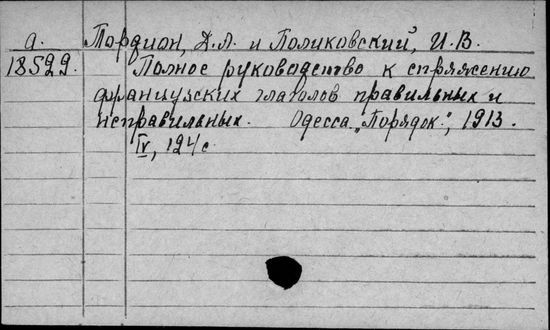 а. Гордион, Д.Л. и Поликовский, И.В.
18529. Полное руководство к спряжению
французских глаголов правильных и
неправильных. Одесса „Порядок", 1913.
IV, 124 с.